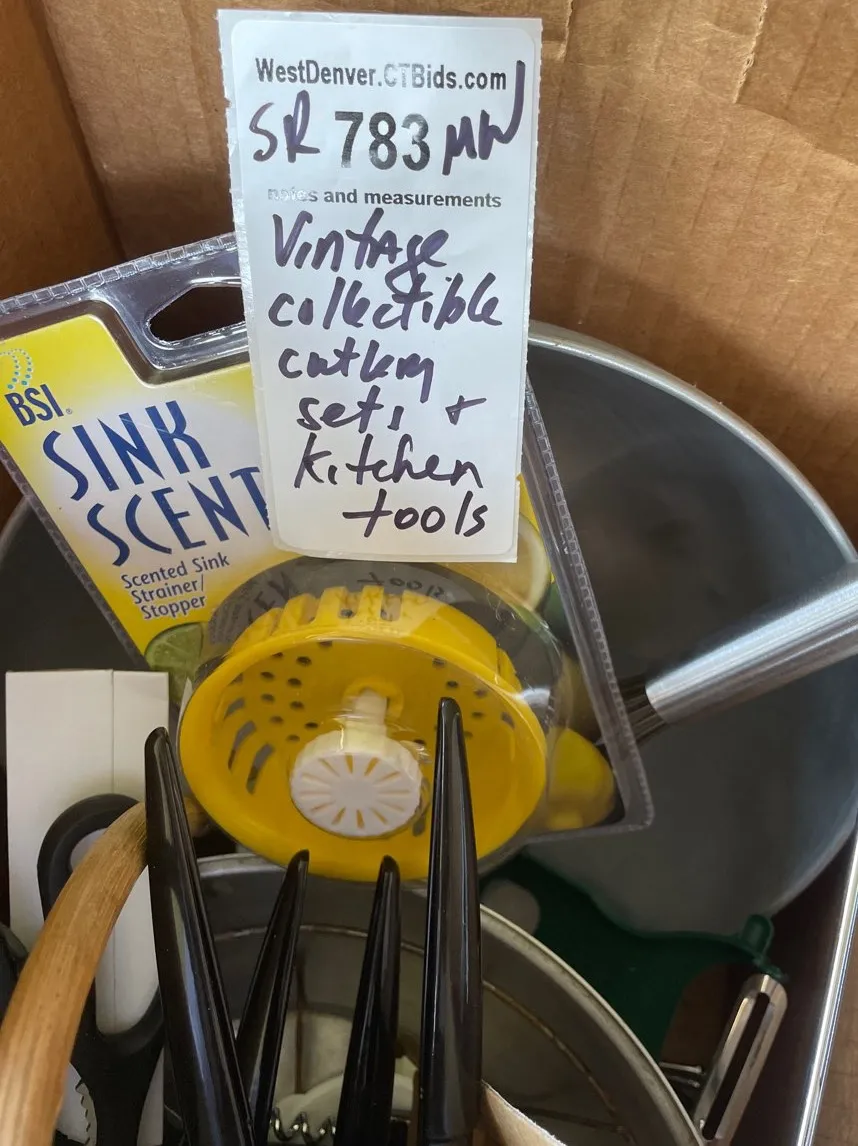 WestDenver.CTBids.com
SR 783 MW
notes and measurements
Vintage
collectible
cutlery
sets +
kitchen
tools
BSI®
SINK
SCENT
Scented Sink
Strainer/
Stopper